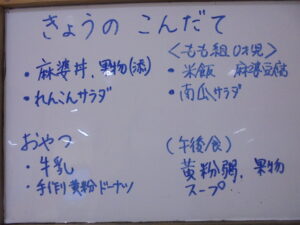 きょうの こんだて
・麻婆丼、果物(添)
・れんこんサラダ
<もも組0才児>
・米飯 麻婆豆腐
・南瓜サラダ
おやつ
・牛乳
・手作り黄粉ドーナツ
(午後食)
黄粉粥、果物
スープ